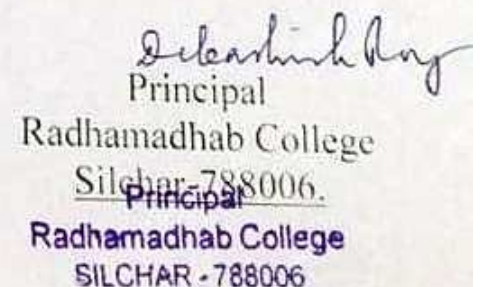 Debashish Roy
Principal
Radhamadhab College
Silchar-788006.
Principal
Radhamadhab College
SILCHAR - 788006